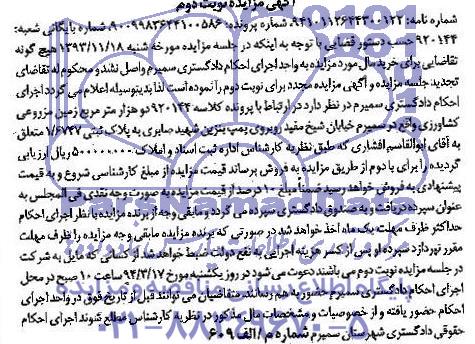 آگهی مزایده نوبت دوم
شماره نامه: ۹۴۱۰۱۱۲۶۴۴۳۰۰۱۲۲ شماره پرونده: ۹۰۰۹۹۸۳۶۲۴۱۰۰۵۸۶ شماره بایگانی شعبه:
۹۲۰۱۴۴ حسب دستور قضایی با توجه به اینکه در جلسه مزایده مورخه شنبه ۱۳۹۳/۱۱/۱۸ هیچ گونه
تقاضایی برای خرید مال مورد مزایده به واحد اجرای احکام دادگستری سمیرم واصل نشد و محکوم له تقاضای
تجدید جلسه مزایده و آگهی مزایده مجدد برای نوبت دوم را نموده است لذا بدینوسیله اعلام می گردد اجرای
احکام دادگستری سمیرم در نظر دارد در ارتباط با پرونده کلاسه ۹۲۰۱۴۴ دو هزار متر مربع زمین مزروعی
کشاورزی واقع در سمیرم خیابان شیخ مفید روبروی پمپ بنزین شهید صابری به پلاک ثبتی ۱/۶۷۴۷ متعلق
به آقای ابوالقاسم افشاری که طبق نظریه کارشناس اداره ثبت اسناد و املاک ۵۰۰۰۰۰۰۰۰ ریال ارزیابی
گردیده را برای بار دوم از طریق مزایده به فروش برساند قیمت مزایده از مبلغ کارشناسی شروع و به قیمت
پیشنهادی به فروش خواهد رسید ضمنا مبلغ ۱۰ درصد از قیمت مزایده به صورت وجه نقدی فی المجلس به
عنوان سپرده دریافت و به صندوق دادگستری سپرده می گردد و مابقی وجه از برنده مزایده با نظر اجرای احکام
حداکثر ظرف مهلت یک ماه اخذ خواهد شد در صورتی که برنده مزایده مابقی وجه مزایده را ظرف مهلت
مقرر نپردازد سپرده او پس از کسر هزینه اجرایی به نفع دولت ضبط خواهد شد. از کسانی که مایل به شرکت
در جلسه مزایده نوبت دوم می باشند دعوت می شود در روز یکشنبه مورخ ۹۴/۳/۱۷ ساعت ۱۰ صبح در محل
اجرای احکام دادگستری سمیرم حضور به هم رسانند. متقاضیان می توانند قبل از تاریخ فوق در واحد اجرای
احکام حضور یافته و از خصوصیات و مشخصات مال مذکور در نظریه کارشناس مطلع شوند اجرای احکام
حقوقی دادگستری شهرستان سمیرم شماره م الف ۶۰۹
پایگاه اطلاع رسانی مناقصه و مزایده
۰۲۱-۸۸۳۴۹۶۷۰-۵